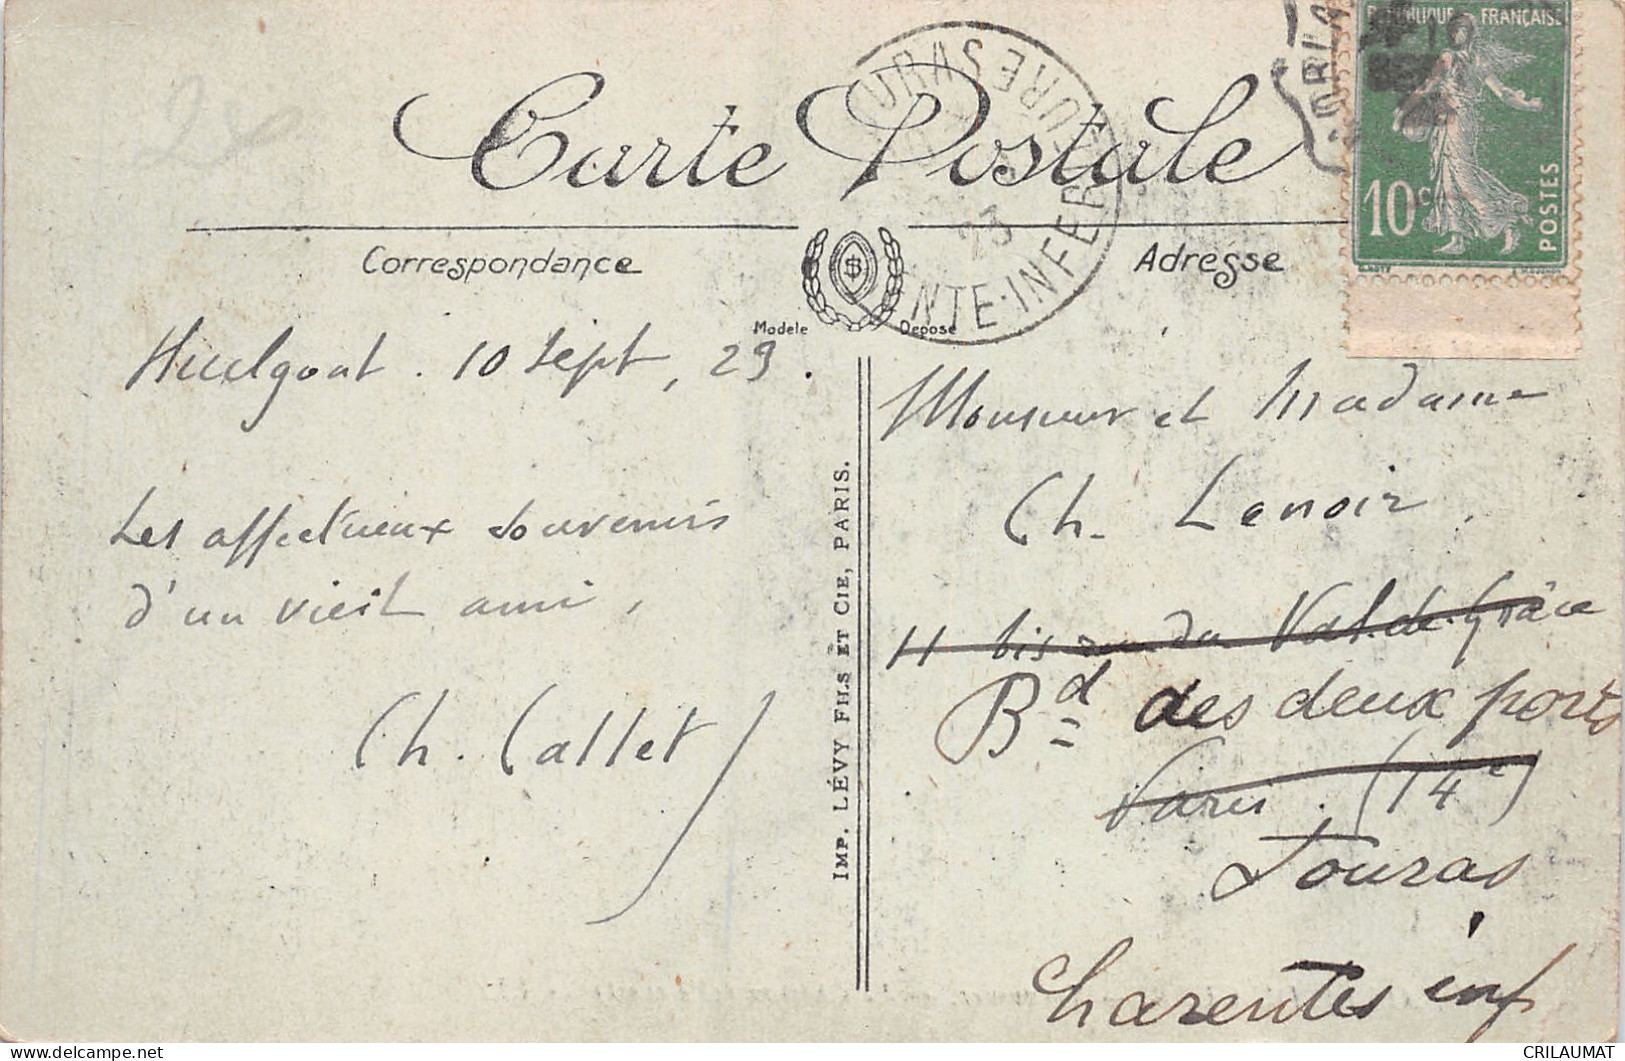 Carte Postale
RÉPUBLIQUE FRANÇAISE
10c
POSTES
URAS
NTE-INFERIEURE
23
Correspondance
Adresse
Modèle Déposé
Huelgoat. 10 Sept, 23.
Les affectueux souvenirs
d'un vieil ami,
Ch. Callet
IMP. LÉVY FILS ET CIE, PARIS.
Monsieur et Madame
Ch. Lenoir,
11 bis rue du Val-de-Grâce
Bd des deux ports
Paris. (14e)
Fouras
Charentes inf
24
CRILAUMAT